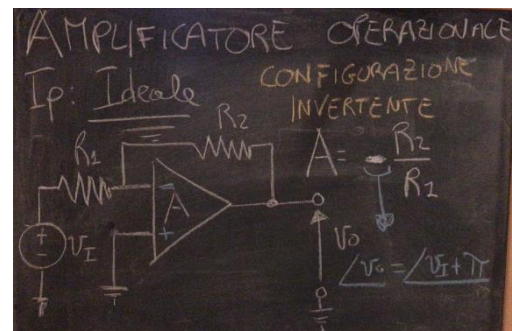 AMPLIFICATORE OPERAZIONALE
Ip: Ideale
CONFIGURAZIONE
INVERTENTE
R2
R1
A = - R2/R1
-
A
+
+
-
vI
vo
∠vo = ∠vI + π